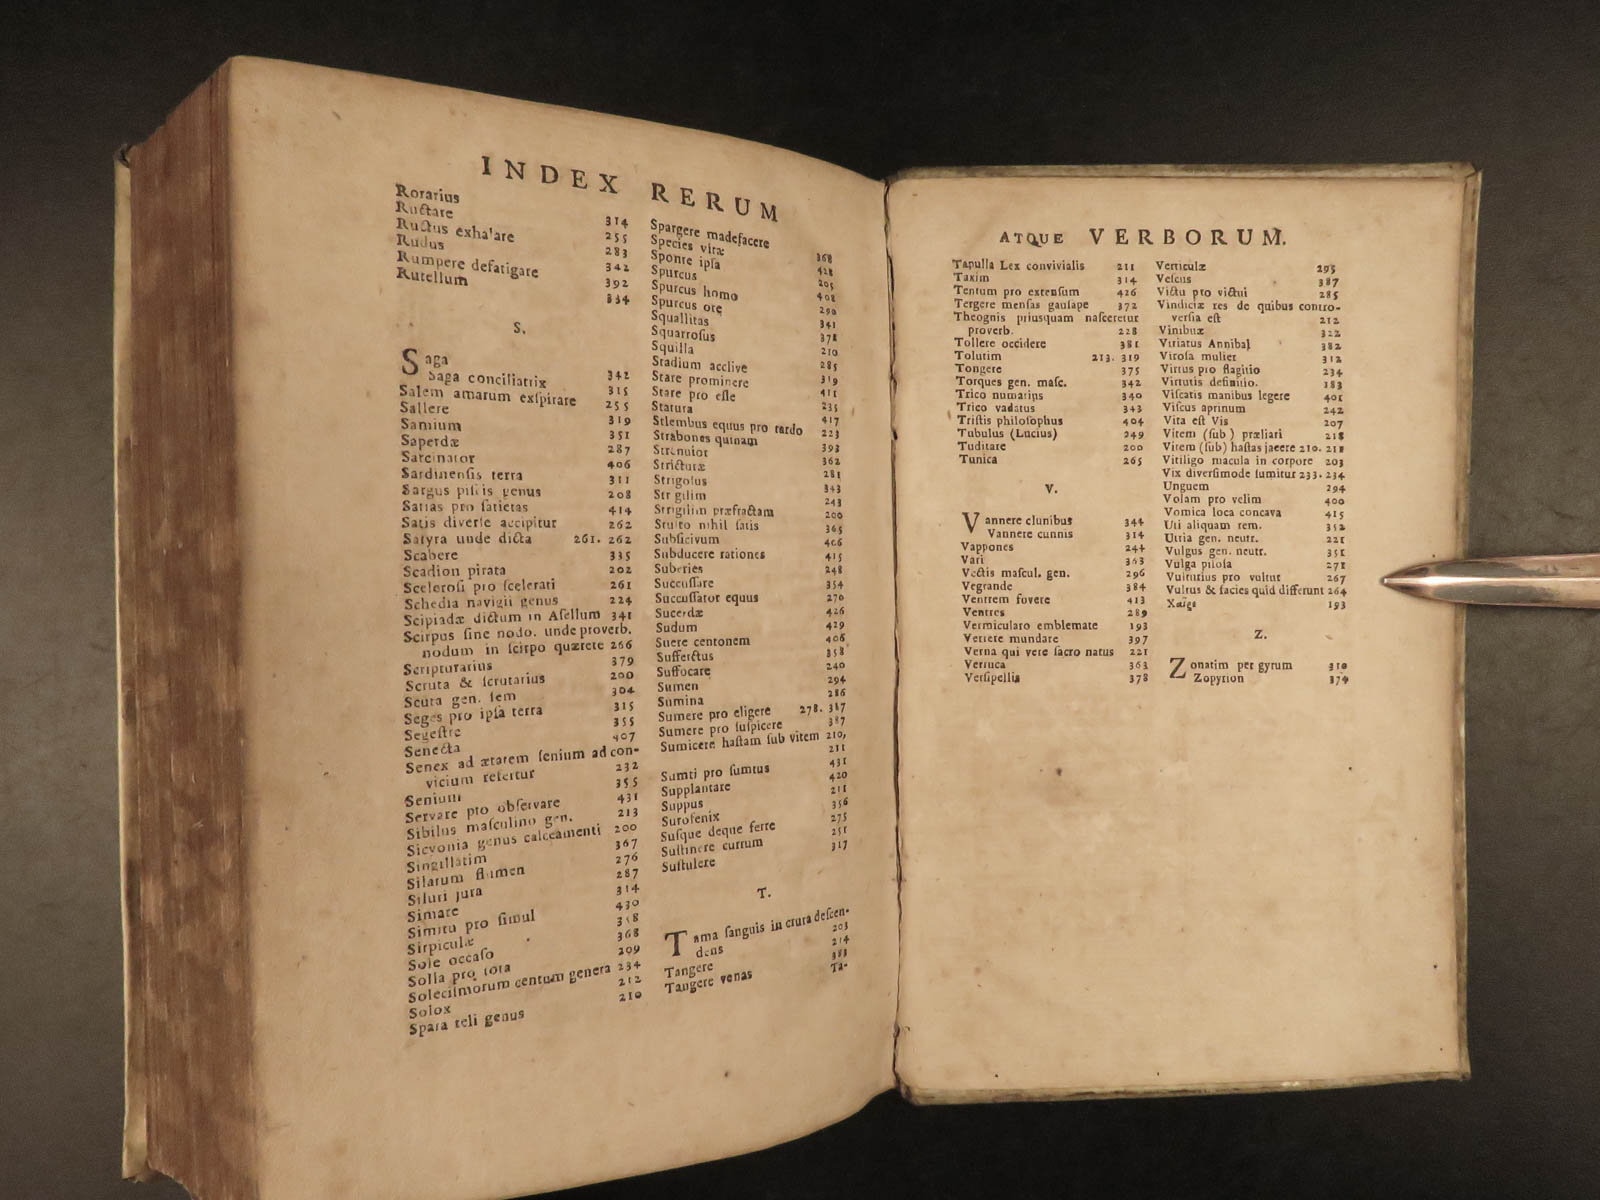 INDEX RERUM
Rorarius 314
Ructare 255
Ructus exhalare 283
Rudus 342
Rumpere defatigare 392
Rutellum 334
S.
Saga 342
Saga conciliatrix 315
Salem amarum exſpirare 255
Sallere 319
Samium 351
Saperdæ 287
Sarcinator 406
Sardinenſis terra 311
Sargus piſcis genus 208
Satias pro ſatietas 414
Satis diverſe accipitur 262
Satyra unde dicta 261. 262
Scabere 335
Scadion pirata 202
Sceleroſi pro ſcelerati 261
Schedia navigii genus 224
Scipiadæ dictum in Aſellum 341
Scirpus ſine nodo. unde proverb.
nodum in ſcirpo quærere 266
Scripturarius 379
Scruta & ſcrutarius 200
Scuta gen. ſem 304
Seges pro ipſa terra 315
Segeſtre 355
Senecta 407
Senex ad ætatem ſenium ad con-
vicium refertur 232
Senium 355
Servare pro obſervare 431
Sibilus maſculino gen. 213
Sicyonia genus calceamenti 200
Singillatim 367
Silarum flumen 276
Siluri jura 287
Simare 314
Simitu pro ſimul 430
Sirpiculæ 358
Sole occaſo 368
Solla pro tota 209
Soleciſmorum centum genera 234
Solox 212
Spara teli genus 210
Spargere madefacere 368
Species vitæ 428
Sponte ipſa 205
Spurcus 408
Spurcus homo 290
Spurcus ore 341
Squallitas 378
Squarroſus 210
Squilla 285
Stadium acclive 319
Stare prominere 411
Stare pro eſſe 235
Statura 417
Stlembus equus pro tardo 223
Strabones quinam 393
Strenuior 362
Stricturæ 281
Strigoſus 343
Strigilim 243
Strigilim præfractam 200
Stulto nihil ſatis 365
Subſicivum 406
Subducere rationes 415
Suberies 248
Succuſſare 354
Succuſſator equus 270
Sucerdæ 426
Sudum 429
Suere centonem 406
Suffertus 358
Suffocare 240
Sumen 294
Sumina 286
Sumere pro eligere 278. 387
Sumere pro ſuſpicere 387
Sumicere haſtam ſub vitem 210,
211
Sumti pro ſumtus 431
Supplantare 420
Suppus 211
Suroſenix 356
Suſque deque ferre 275
Suſtinere currum 251
Suſtulere 317
T.
Tama ſanguis in crura deſcen-
dens 203
Tangere 214
Tangere venas 388
Ta-
ATQUE VERBORUM.
Tapulla Lex convivialis 211
Taxim 314
Tentum pro extenſum 426
Tergere menſas gauſape 372
Theognis priuſquam naſceretur
proverb. 228
Tollere occidere 381
Tolutim 213. 319
Tongere 375
Torques gen. maſc. 342
Trico numarius 340
Trico vadatus 343
Triſtis philoſophus 404
Tubulus (Lucius) 249
Tuditare 200
Tunica 265
V.
Vannere clunibus 344
Vannere cunnis 314
Vappones 244
Vari 363
Vectis maſcul. gen. 296
Vegrande 384
Ventrem fovere 413
Ventres 289
Vermicularo emblemate 193
Verrere mundare 397
Verna qui vere ſacro natus 221
Verruca 363
Verſipellis 378
Verticulæ 295
Veſcus 387
Victu pro victui 285
Vindiciæ res de quibus contro-
verſia eſt 212
Vinibuæ 322
Viriatus Annibal 382
Viroſa mulier 312
Virtus pro flagitio 234
Virtutis definitio. 183
Viſcatis manibus legere 401
Viſcus aprinum 242
Vita eſt Vis 207
Vitem (ſub) præliari 218
Vitem (ſub) haſtas jacere 210. 211
Vitiligo macula in corpore 203
Vix diverſimode ſumitur 233. 234
Unguem 294
Volam pro velim 400
Vomica loca concava 415
Uti aliquam rem. 352
Utria gen. neutr. 221
Vulgus gen. neutr. 351
Vulga piloſa 271
Vulturius pro vultur 267
Vultus & facies quid differunt 264
193
Z.
Zonatim per gyrum 310
Zopyrion 374